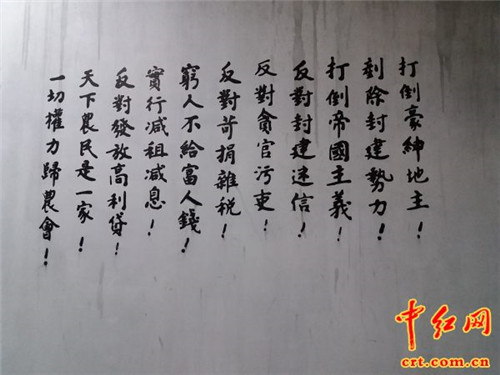 打倒豪紳地主！
剷除封建勢力！
打倒帝國主義！
反對封建迷信！
反對貪官污吏！
反對苛捐雜税！
窮人不給富人錢！
實行减租减息！
反對發放高利貸！
天下農民是一家！
一切權力歸農會！
中红网
crt.com.cn